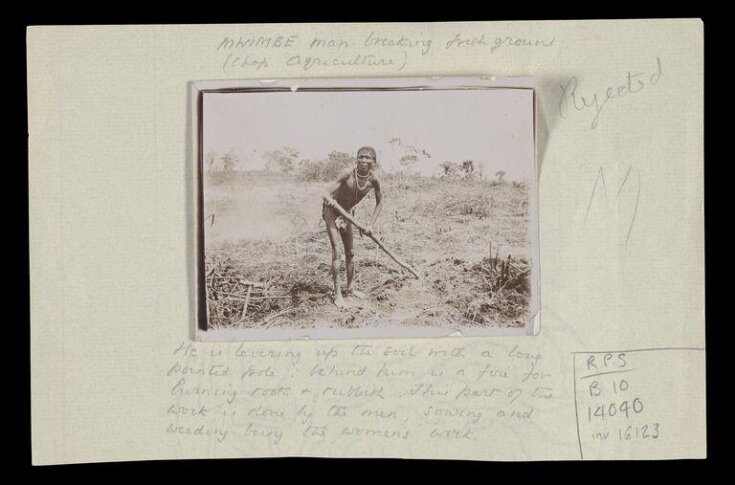 MWIMBE man breaking fresh ground
(Chap Agriculture)
Rejected
17
He is levering up the soil with a long
pointed pole : behind him is a fire for
burning roots & rubbish. This part of the
work is done by the men, sowing and
weeding being the womens' work.
R.P.S
B 10
14040
inv 16123